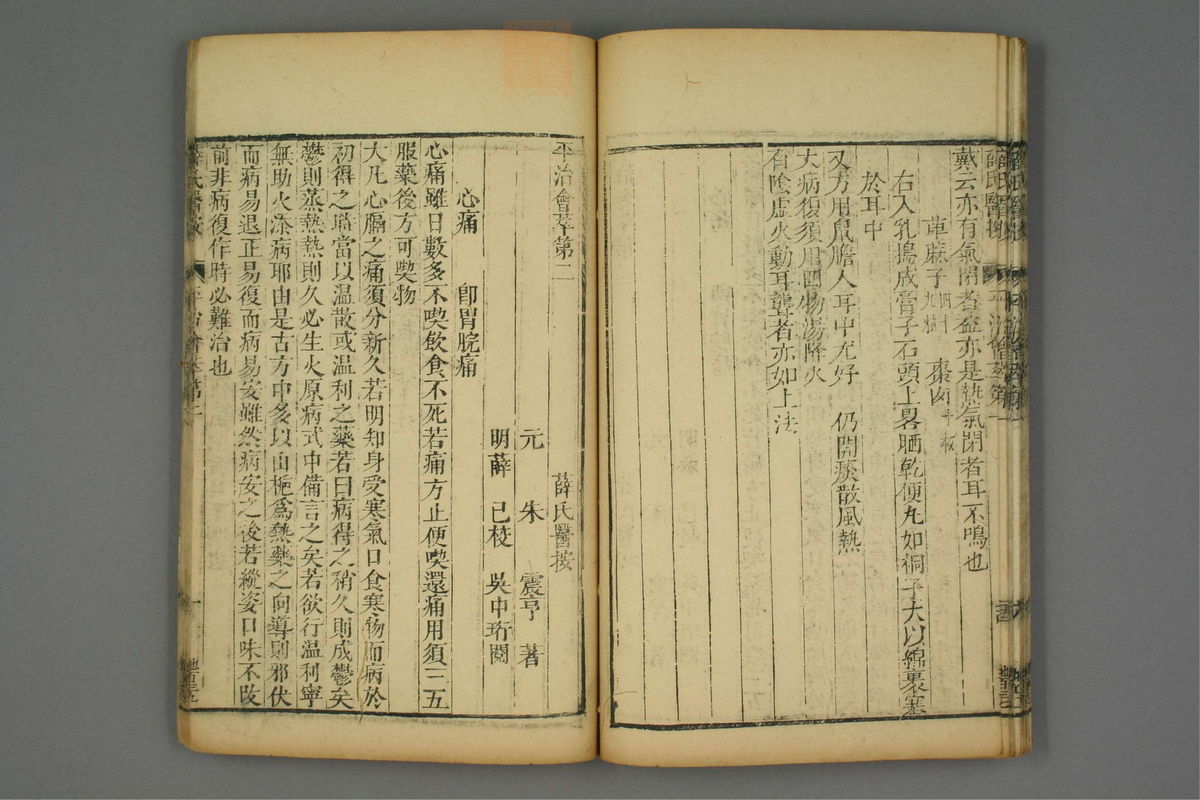 戴云亦有氣閉者蓋亦是熱氣閉者耳不鳴也
萆麻子 棗肉
右入乳搗成膏子石頭上畧晒乾便丸如桐子大以綿裹塞
於耳中
又方用鼠膽入耳中尤好 仍開痰散風熱
大病後須用四物湯降火
有陰虛火動耳聾者亦如上法
平治會萃第二 薛氏醫按
元 朱 震亨 著
明薛 已校 吳中珩閱
心痛 卽胃脘痛
心痛雖日數多不喫飲食不死若痛方止便喫還痛用須三五
服藥後方可喫物
大凡心膈之痛須分新久若明知身受寒氣口食寒物而病於
初得之時當以温散或温利之藥若曰病得之稍久則成鬱矣
鬱則蒸熱熱則久必生火原病式中備言之矣若欲行温利寧
無助火添病耶由是古方中多以山梔爲熱藥之向導則邪伏
而病易退正易復而病易安雖然病安之後若縱姿口味不改
前非病復作時必難治也
薛氏醫按 平治會萃第二 一